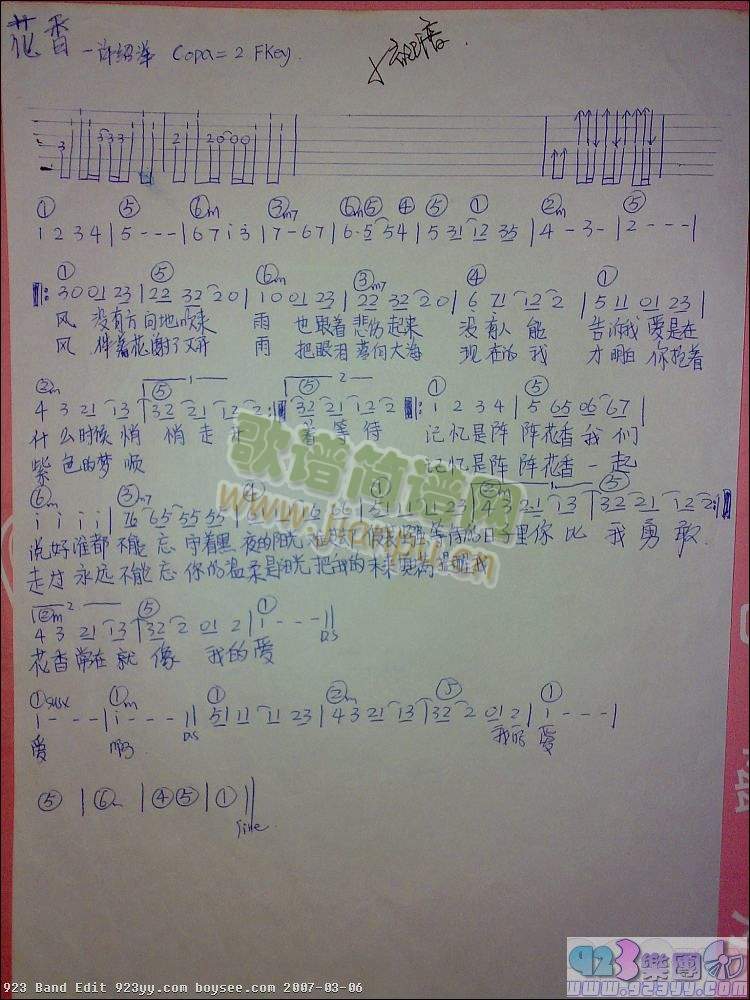 花香 — 许绍洋 Capo=2 FKey.
① ⑤ ⑥m ③m7 ⑥m ⑤ ④ ⑤ ① ②m ⑤
1 2 3 4 | 5 - - - | 6 7 i 3 | 7 - 6 7 | 6· 5 5 4 | 5 31 12 35 | 4 - 3 - | 2 - - - |
① ⑤ ⑥m ③m7 ④ ①
‖: 30 01 23 | 22 32 20 | 10 01 23 | 22 32 20 | 6 71 12 2 | 5 11 01 23 |
风 没有方向地吹来 雨 也跟着悲伤起来 没有人能 告诉我爱是在
风 伴着花谢了又开 雨 把眼泪落向大海 现在的我 才明白你抱着
②m ⑤ 1 ⑤ 2 ① ⑤
4 3 21 13 | 32 21 12 2 :‖ 32 21 12 2 ‖: i 2 3 4 | 5 65 06 67 |
什么时候悄悄走开 着等待 记忆是阵阵花香我们
紫色的梦 记忆是阵阵花香一起
⑥m ③m7 ④ ① ②m ⑤
i i i i | 76 65 55 55
说好谁都不能忘 守着黑夜的阳光 等待的日子里你比我勇敢
走过永远不能忘 你的温柔是阳光把我的未来
②m 2 ⑤ ①
4 3 21 13 | 32 2 01 2 | i - - - ‖ D.S
花香常在就像 我的爱
①sus4 ①m ① ②m ⑤ ①
i - - - | i - - - ‖ D.S 51 11 11 23 | 43 21 13 | 32 2 01 2 | i - - - |
爱 啊 我的 爱
⑤ | ⑥m | ④⑤ | ① ‖
fine
歌谱简谱网
www.jianpu.cn
923樂團
www.923yy.com
923 Band Edit 923yy.com boysee.com 2007-03-06